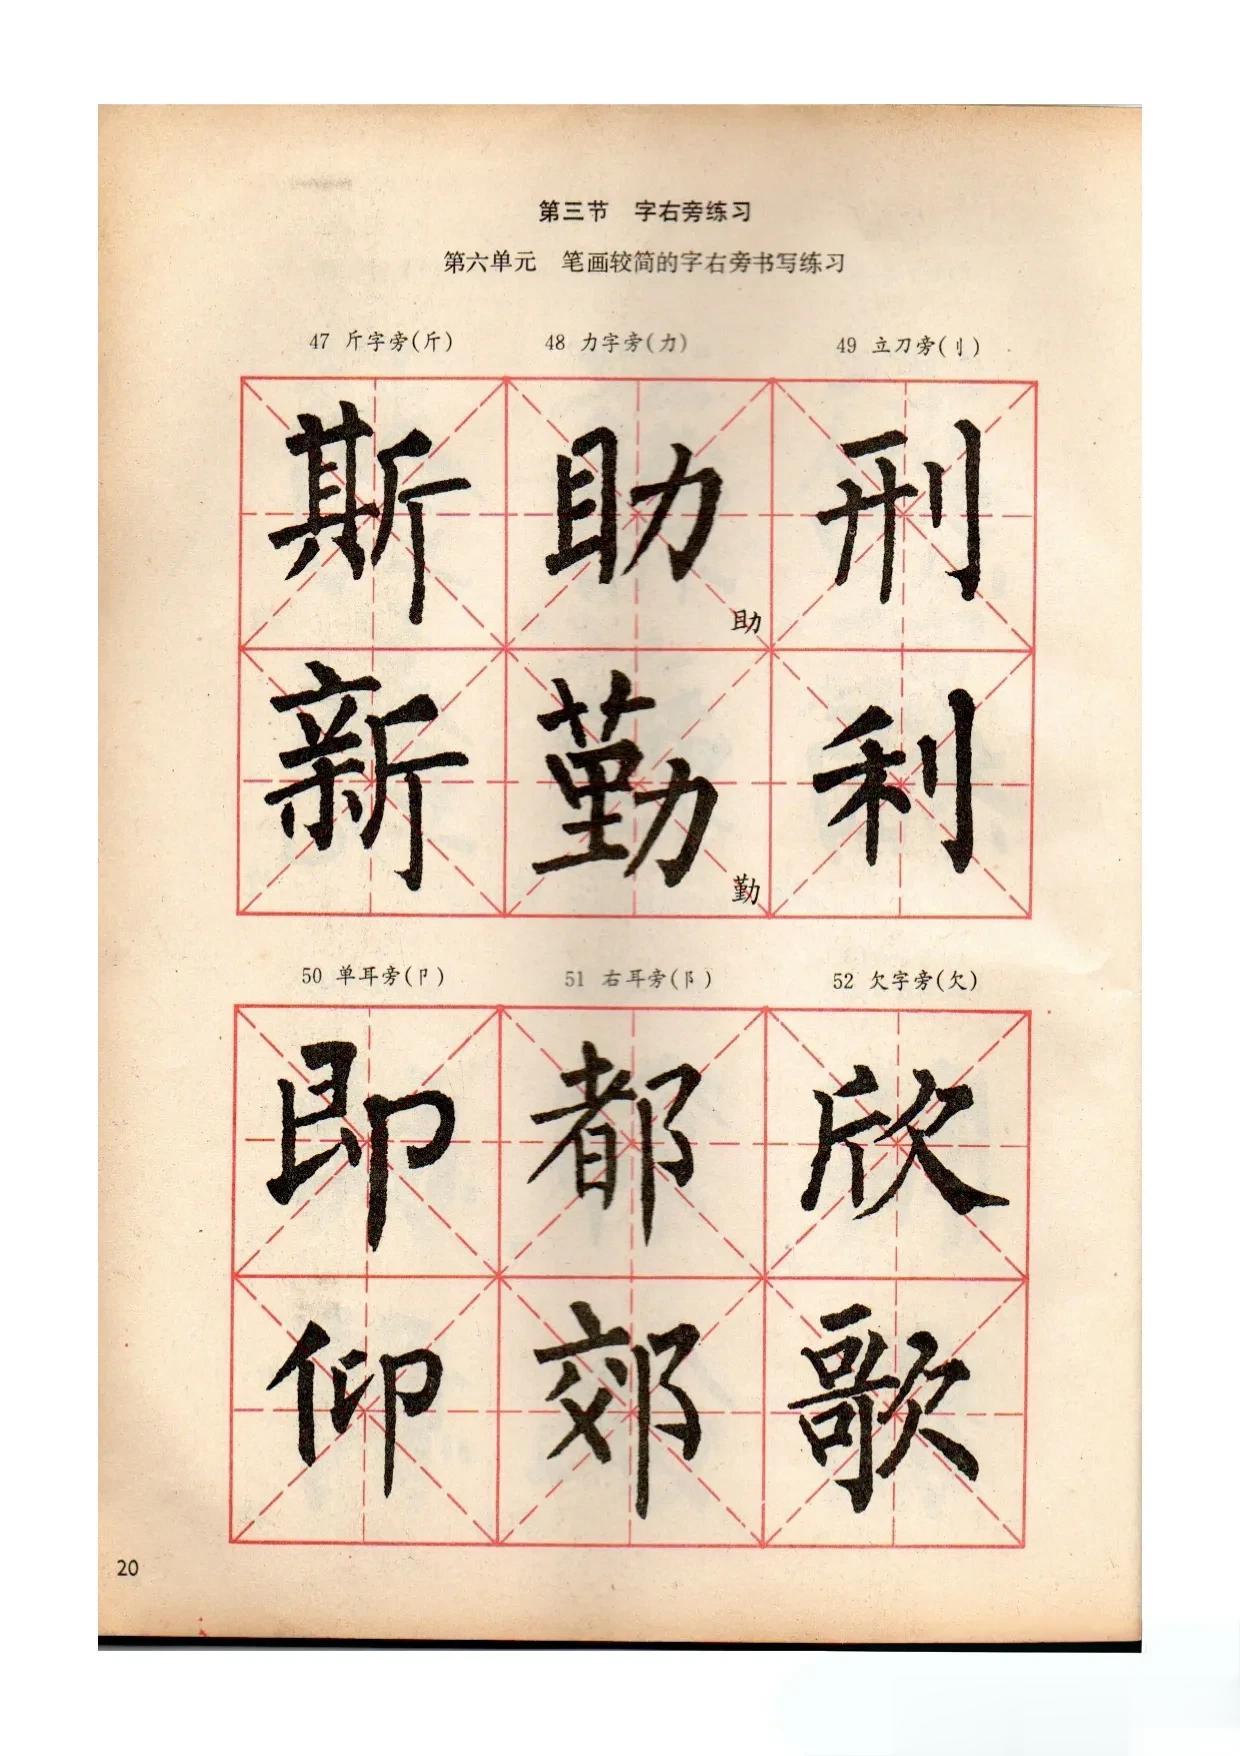 第三节 字右旁练习
第六单元 笔画较简的字右旁书写练习
47 斤字旁(斤) 48 力字旁(力) 49 立刀旁(刂)
斯 助 刑
助
新 勤 利
勤
50 单耳旁(卩) 51 右耳旁(阝) 52 欠字旁(欠)
即 都 欣
仰 郊 歌
20